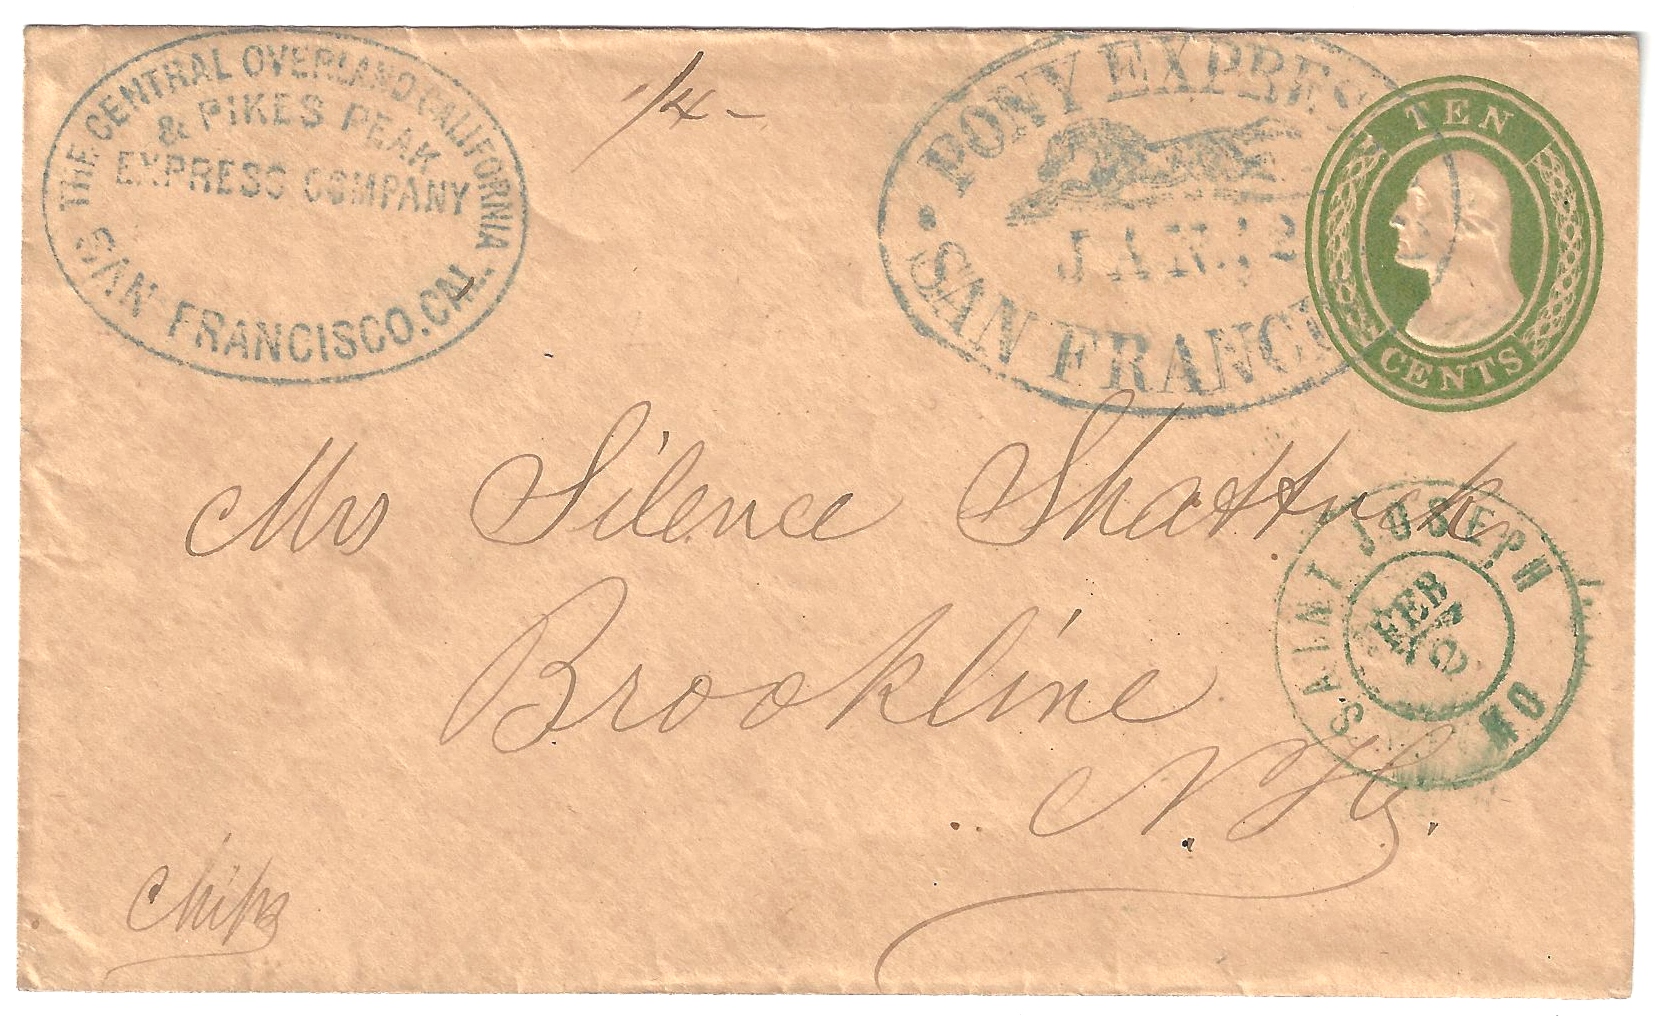 THE CENTRAL OVERLAND CALIFORNIA
& PIKES PEAK
EXPRESS COMPANY
SAN FRANCISCO. CAL
1/4 -
PONY EXPRESS
JAN.
SAN FRANCI
TEN
CENTS
Mrs Silence Shattuck
Brookline
N. H.
SAINT JOSEPH
FEB
MO